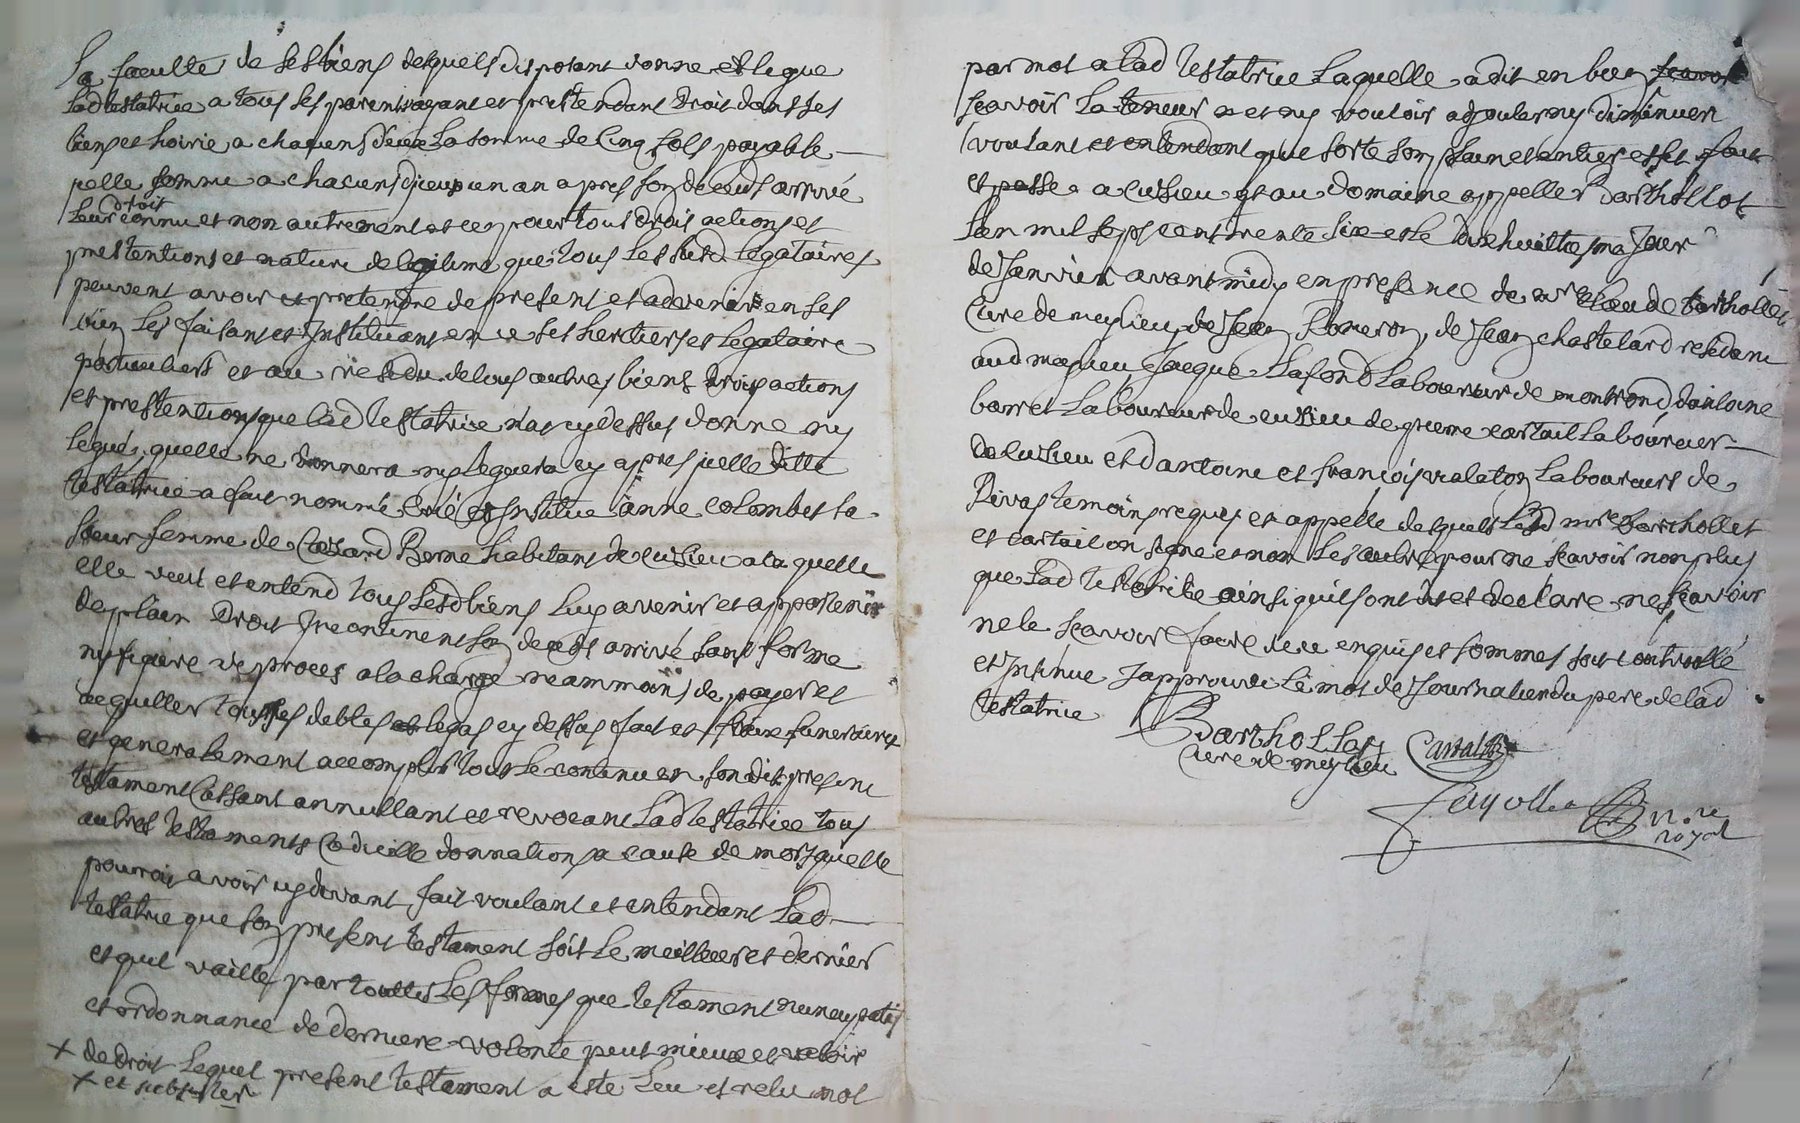 la faculte de ses biens desquels disposant donne et legue
lad testatrice a tous ses parents ayant et prettendant droit dans ses
biens et hoirie a chacuns deux la somme de cinq sols payable
jcelle somme a chacuns djceux un an apres son deceds arrivé
leur droit connu et non autrement et ce pour tous droits actions et
prettentions et nature de legitime que tous les susd legataires
peuvent avoir et prettendre de present et advenir en ses
biens les faisant et jnstituant en ce ses heritiers et legataire
particuliers et au residu de tous autres biens droits actions
et prettentions que lad testatrice n'as cy dessus donne ny
legué, quelle ne donnera ny leguera cy apres jcelle ditte
testatrice a fait nommé créé et jnstitue anne colombet sa
soeur femme de Cesard Berne habitant de cuzieu a la quelle
elle veut et entend tous sesd biens luy avenir et appartenir
de plain droit jncontinent son deceds arrivé sans forme
ny figure de proces a la charge neammoins de payer et
acquitter tous ses debtes et legas cy dessus fait et fraix funeraires
et generalement accomplir tout le contenu en son dit present
testament Cassant annullant et revocant lad testatrice tous
autres testaments Codicille donnation a cause de mort quelle
pourroit avoir cy devant fait voulant et entendant lad
testatrice que son present testament soit le meilleur et dernier
et quil vaille par touttes les formes que testament nuncupatif
et ordonnance de derniere volonte peut mieux et valoir
x de droit lequel present testament a este leu et relu mot
x et subsister
par mot a lad testatrice laquelle a dit en bien scavoir
scavoir la teneur et ny vouloir adjouter ny diminuer
voulant et entendant quil sorte son plain et entier effet fait
et passe a cuzieu et au domaine appelle Barthollot
lan mil sept cent trente six et le dix huittiesme jour
de janvier avant midy en presence de mre Claude Barthollet
Cure de meylieu, de jean Romeron, de jean chastelard residant
aud meylieu jacque Lafond laboureur de montrond, dantoine
barret laboureur de cuzieu de pierre cartail laboureur
de cuzieu et dantoine et françois vialaton laboureurs de
Rivas temoins requis et appelle desquels led mre Barthollet
et cartail on signe et non les autres pour ne scavoir non plus
que lad testatrice ainsi quils ont dit et declare ne scavoir
ne le scavoir faire de ce enquis et sommes soit controllé
et jnsinue japprouve le mot de journalier du pere de lad
testatrice
Barthollet Cartail
Cure de meylieu
nre
royal